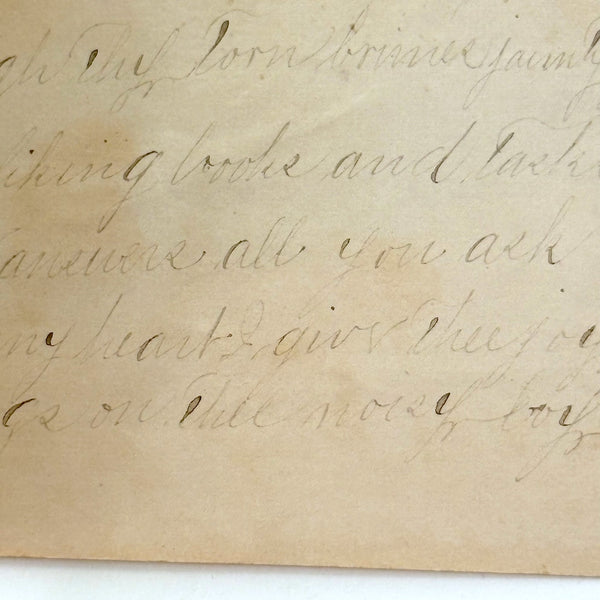 gh thy torn brimes jaunty
liking books and task
answers all you ask
my heart I give thee joy
gs on thee noisy boy